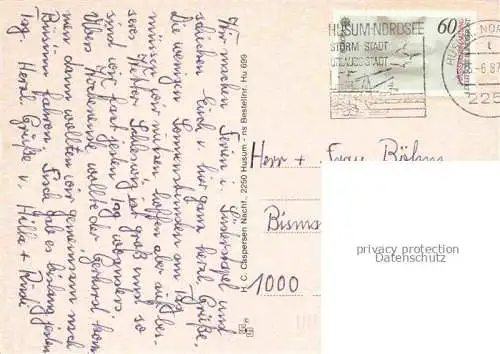 Wir machen Ferien i. Süderstapel und
schicken Euch v. hier ganz herzl. Grüße.
Die wenigen Sonnenstunden am Tag
müssen wir nutzen, hoffen aber auf bes-
seres Wetter. Schleswig ist groß und so
sind wir fast jeden Tag woanders.
Übers Wochenende wollte der Gerhard kom-
men dann wollten wir gemeinsam nach
Büsum fahren. Fisch gab es bislang jeden
Tag. Herzl. Grüße v. Hilka +
H. C. Caspersen Nachf., 2250 Husum - Bestellnr. Hu 699
HUSUM-NORDSEE
STORM-STADT
60
HUSUM, NOR
-6.87
225
Herr + Frau Böhm
Bism
1000
privacy protection
Datenschutz